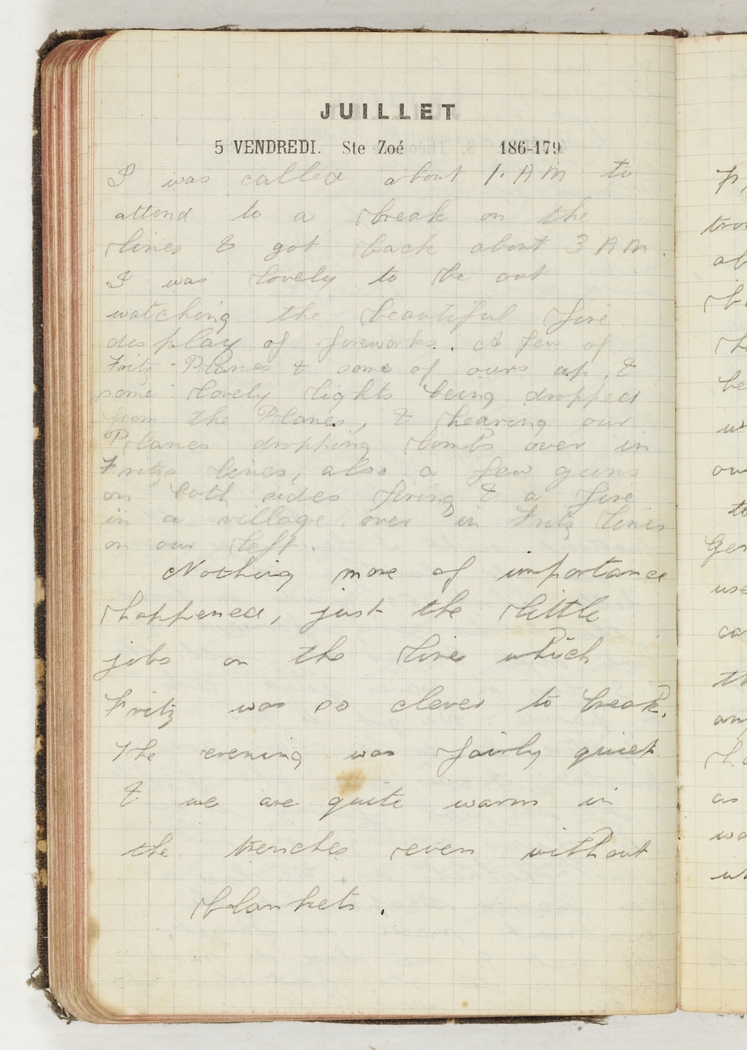 JUILLET
5 VENDREDI. Ste Zoé 186-179
I was called about 1. A M to
attend to a break on the
lines & got back about 3 A M
I was lovely to be out
watching the beautiful fire
display of fireworks. A few of
Fritz Planes & some of ours up, &
some lovely lights being dropped
from the Planes, & hearing our
Planes dropping bombs over in
Fritzs lines, also a few guns
on both sides firing & a fire
in a village over in Fritz lines
on our left.
Nothing more of importance
happened, just the little
jobs on the line which
Fritz was so clever to break.
The evening was fairly quiet
& we are quite warm in
the trenches even without
blankets.